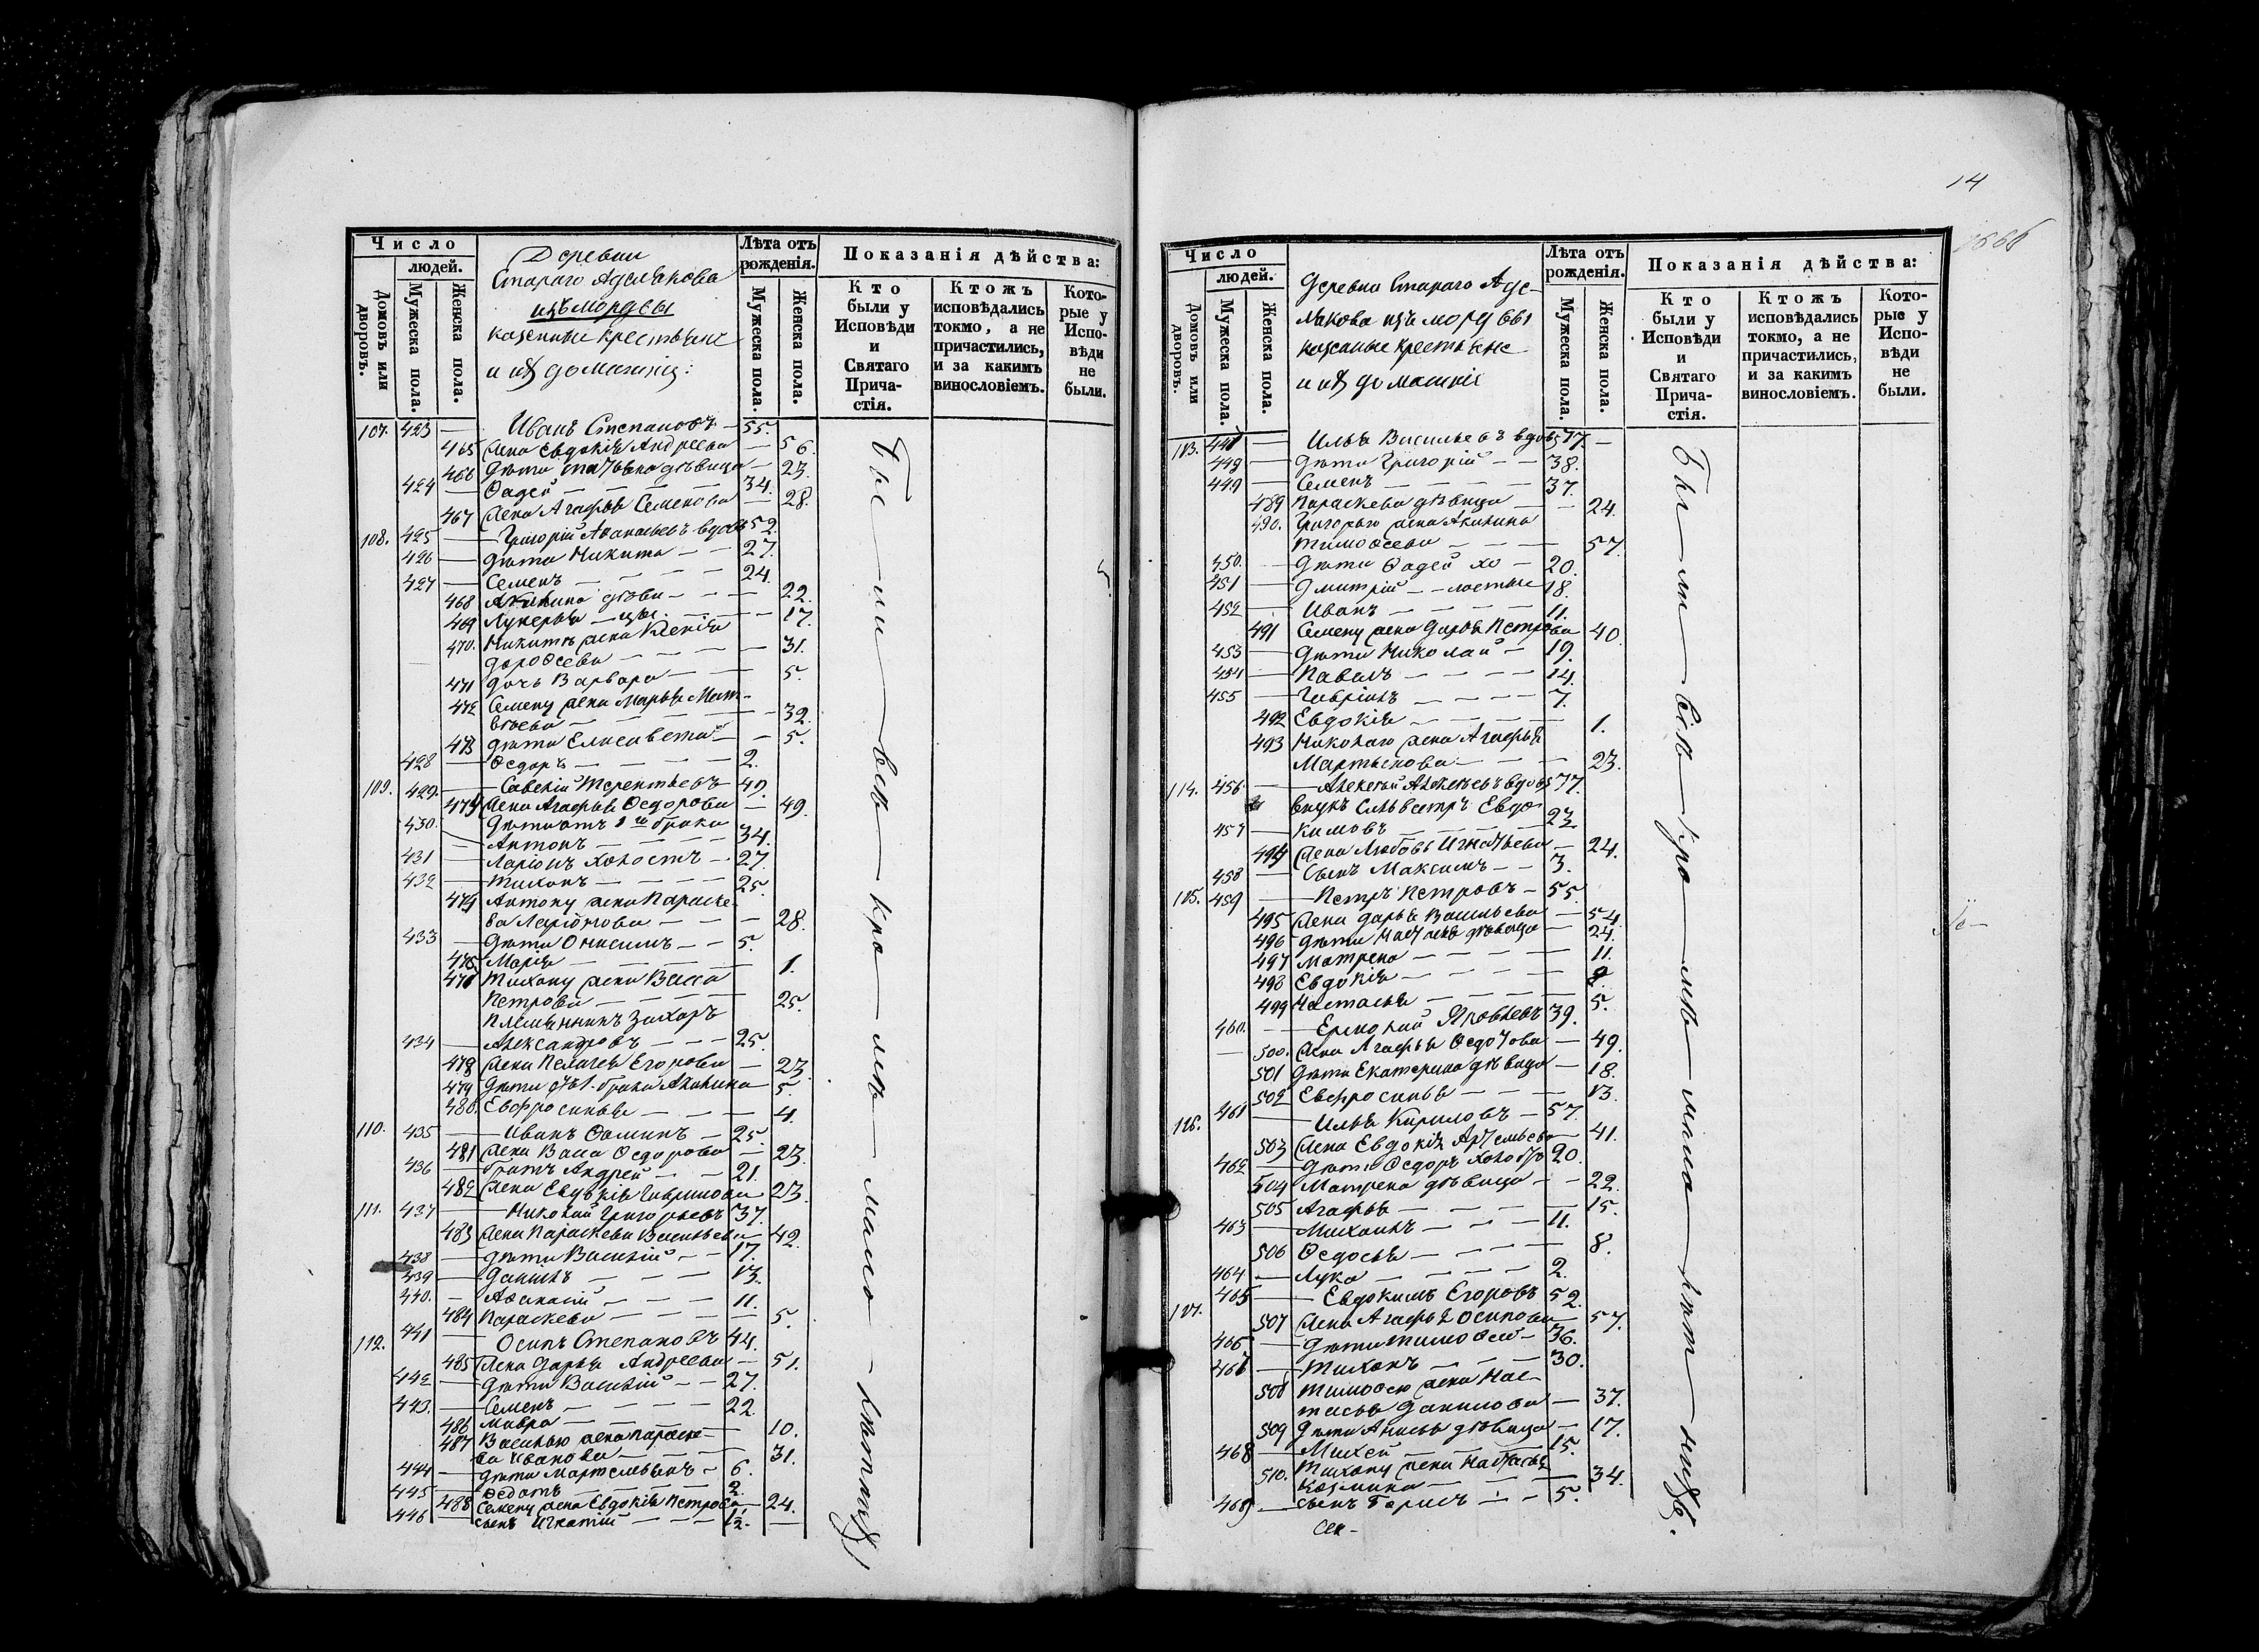 Число
людей.
Домовъ или дворовъ.
Мужеска пола.
Женска пола.
Деревни
Стараго Аделякова
изъ мордвы
казенные крестьяне
и ихъ домашніи:
Лѣта отъ рожденія.
Мужеска пола.
Женска пола.
Показанія дѣйства:
Кто были у Исповѣди и Святаго Причастія.
Ктожъ исповѣдались токмо, а не причастились, и за какимъ винословіемъ.
Которые у Исповѣди не были.
107. 423 — Иванъ Степановъ — 55.
465 Жена Евдокія Андреева — 56.
466 Дѣти Татьяна дѣвица — 23.
424 — Фадей — 34.
467 Жена Агафья Семенова — 28.
108. 425 — Григорій Афанасьевъ вдовъ 52.
426 — Дѣти Никита — 27.
427 — Семенъ — 24.
468 Акилина дѣви — 22.
469 Лукерья — цы. — 17.
470. Никитѣ жена Ксенія
Дорофеева — 31.
471 Дочь Варвара — 5.
472 Семену жена Марья Мат-
вѣева — 32.
473 Дѣти Елисавета — 5.
428 — Федоръ — 2.
109. 429. — Савелій Терентьевъ — 49.
474 Жена Агафья Федорова — 49.
Дѣти отъ 1го брака
430. — Антонъ — 34.
431 — Ларіонъ холостъ — 27.
432 — Тихонъ — 25.
475 Антону жена Параске-
ва Ларіонова — 28.
433 — Дѣти Онисимъ — 5.
476 Марія — 1.
477 Тихону жена Васса
Петрова — 25.
Племянникъ Захаръ
434 — Александровъ — 25.
478 Жена Пелагея Егорова — 23.
479 Дѣти отъ 1. брака Акилина — 5.
480. Евфросинья — 4.
110. 435 — Иванъ Фоминъ — 25.
481 Жена Васса Федорова — 23.
436 — братъ Андрей — 21.
482 Жена Евдокія Гаврилова 23.
111. 437 — Николай Григорьевъ 37.
483 Жена Параскева Васильева — 42.
438 — Дѣти Василій — 17.
439 — Данилъ — 13.
440. — Афанасій — 11.
484 Параскева — 5.
112. 441 — Осипъ Степановъ 44.
485 Жена Дарья Андреева — 51.
442 — Дѣти Василій — 27.
443. — Семенъ — 22.
486 Мавра — 10.
487 Василью жена Параске-
ва Иванова — 31.
444 — Дѣти Мартемьянъ — 6.
445 — Федотъ — 2.
488 Семену жена Евдокія Петрова — 24.
446 — сынъ Игнатій — 1/2.
Бы — ли — всѣ — кро — мѣ — мало — лѣтныхъ
14
Число
людей.
Домовъ или дворовъ.
Мужеска пола.
Женска пола.
Деревни Стараго Аде-
лякова изъ мордвы
казенные крестьяне
и ихъ домашніе
Лѣта отъ рожденія.
Мужеска пола.
Женска пола.
Показанія дѣйства:
Кто были у Исповѣди и Святаго Причастія.
Ктожъ исповѣдались токмо, а не причастились, и за какимъ винословіемъ.
Которые у Исповѣди не были.
113. 447 — Илья Васильевъ вдовъ 77 —
448 — Дѣти Григорій — 38.
449 — Семенъ — 37.
489 Параскева дѣвица — 24.
490. Григорью жена Акилина
Тимофеева — 57.
450. — Дѣти Фадей хо — 20.
451 — Дмитрій — лостые 18.
452 — Иванъ — 11.
491 Семену жена Дарья Петрова 40.
453 — Дѣти Николай — 19.
454 — Павелъ — 14.
455 — Гавріилъ — 7.
492 Евдокія — 1.
493 Николаю жена Агафья
Мартынова — 23.
114. 456 — Алексѣй Алексѣевъ вдовъ 77.
Внукъ Сильвестръ Евдо-
457 — кимовъ — 23
494 Жена Любовь Игнатьева — 24.
458 — Сынъ Максимъ — 3.
115. 459 — Петръ Петровъ — 55.
495 Жена Дарья Васильева — 54.
496 Дѣти Наталья дѣвица — 24.
497 Матрена — 11.
498 Евдокія — 9.
499 Настасья — 5.
460. — Ермолай Яковлевъ 39.
500. Жена Агафья Федотова — 49.
501 Дѣти Екатерина дѣвица — 18.
502 Евфросинья — 13.
116. 461 — Илья Кириловъ — 57.
503 Жена Евдокія Артемьева — 41.
462 — Дѣти Федоръ холостъ 20.
504 Матрена дѣвица — 22.
505 Агафья — 15.
463 — Михаилъ — 11.
506 Федосья — 8.
464 — Лука — 2.
117. 465 — Евдокимъ Егоровъ 52.
507 Жена Агафья Осипова — 57.
466 — Дѣти Тимофей — 36.
467 — Тихонъ — 30.
508 Тимофею жена Нас-
тасья Данилова — 37.
509 Дѣти Анисья дѣвица — 17.
468 — Михей — 15.
510. Тихону жена Настасья
Козмина — 34.
469 — сынъ Борисъ — 5.
Сем-
Бы — ли — всѣ — кро — мѣ — мало — лѣт — ныхъ.